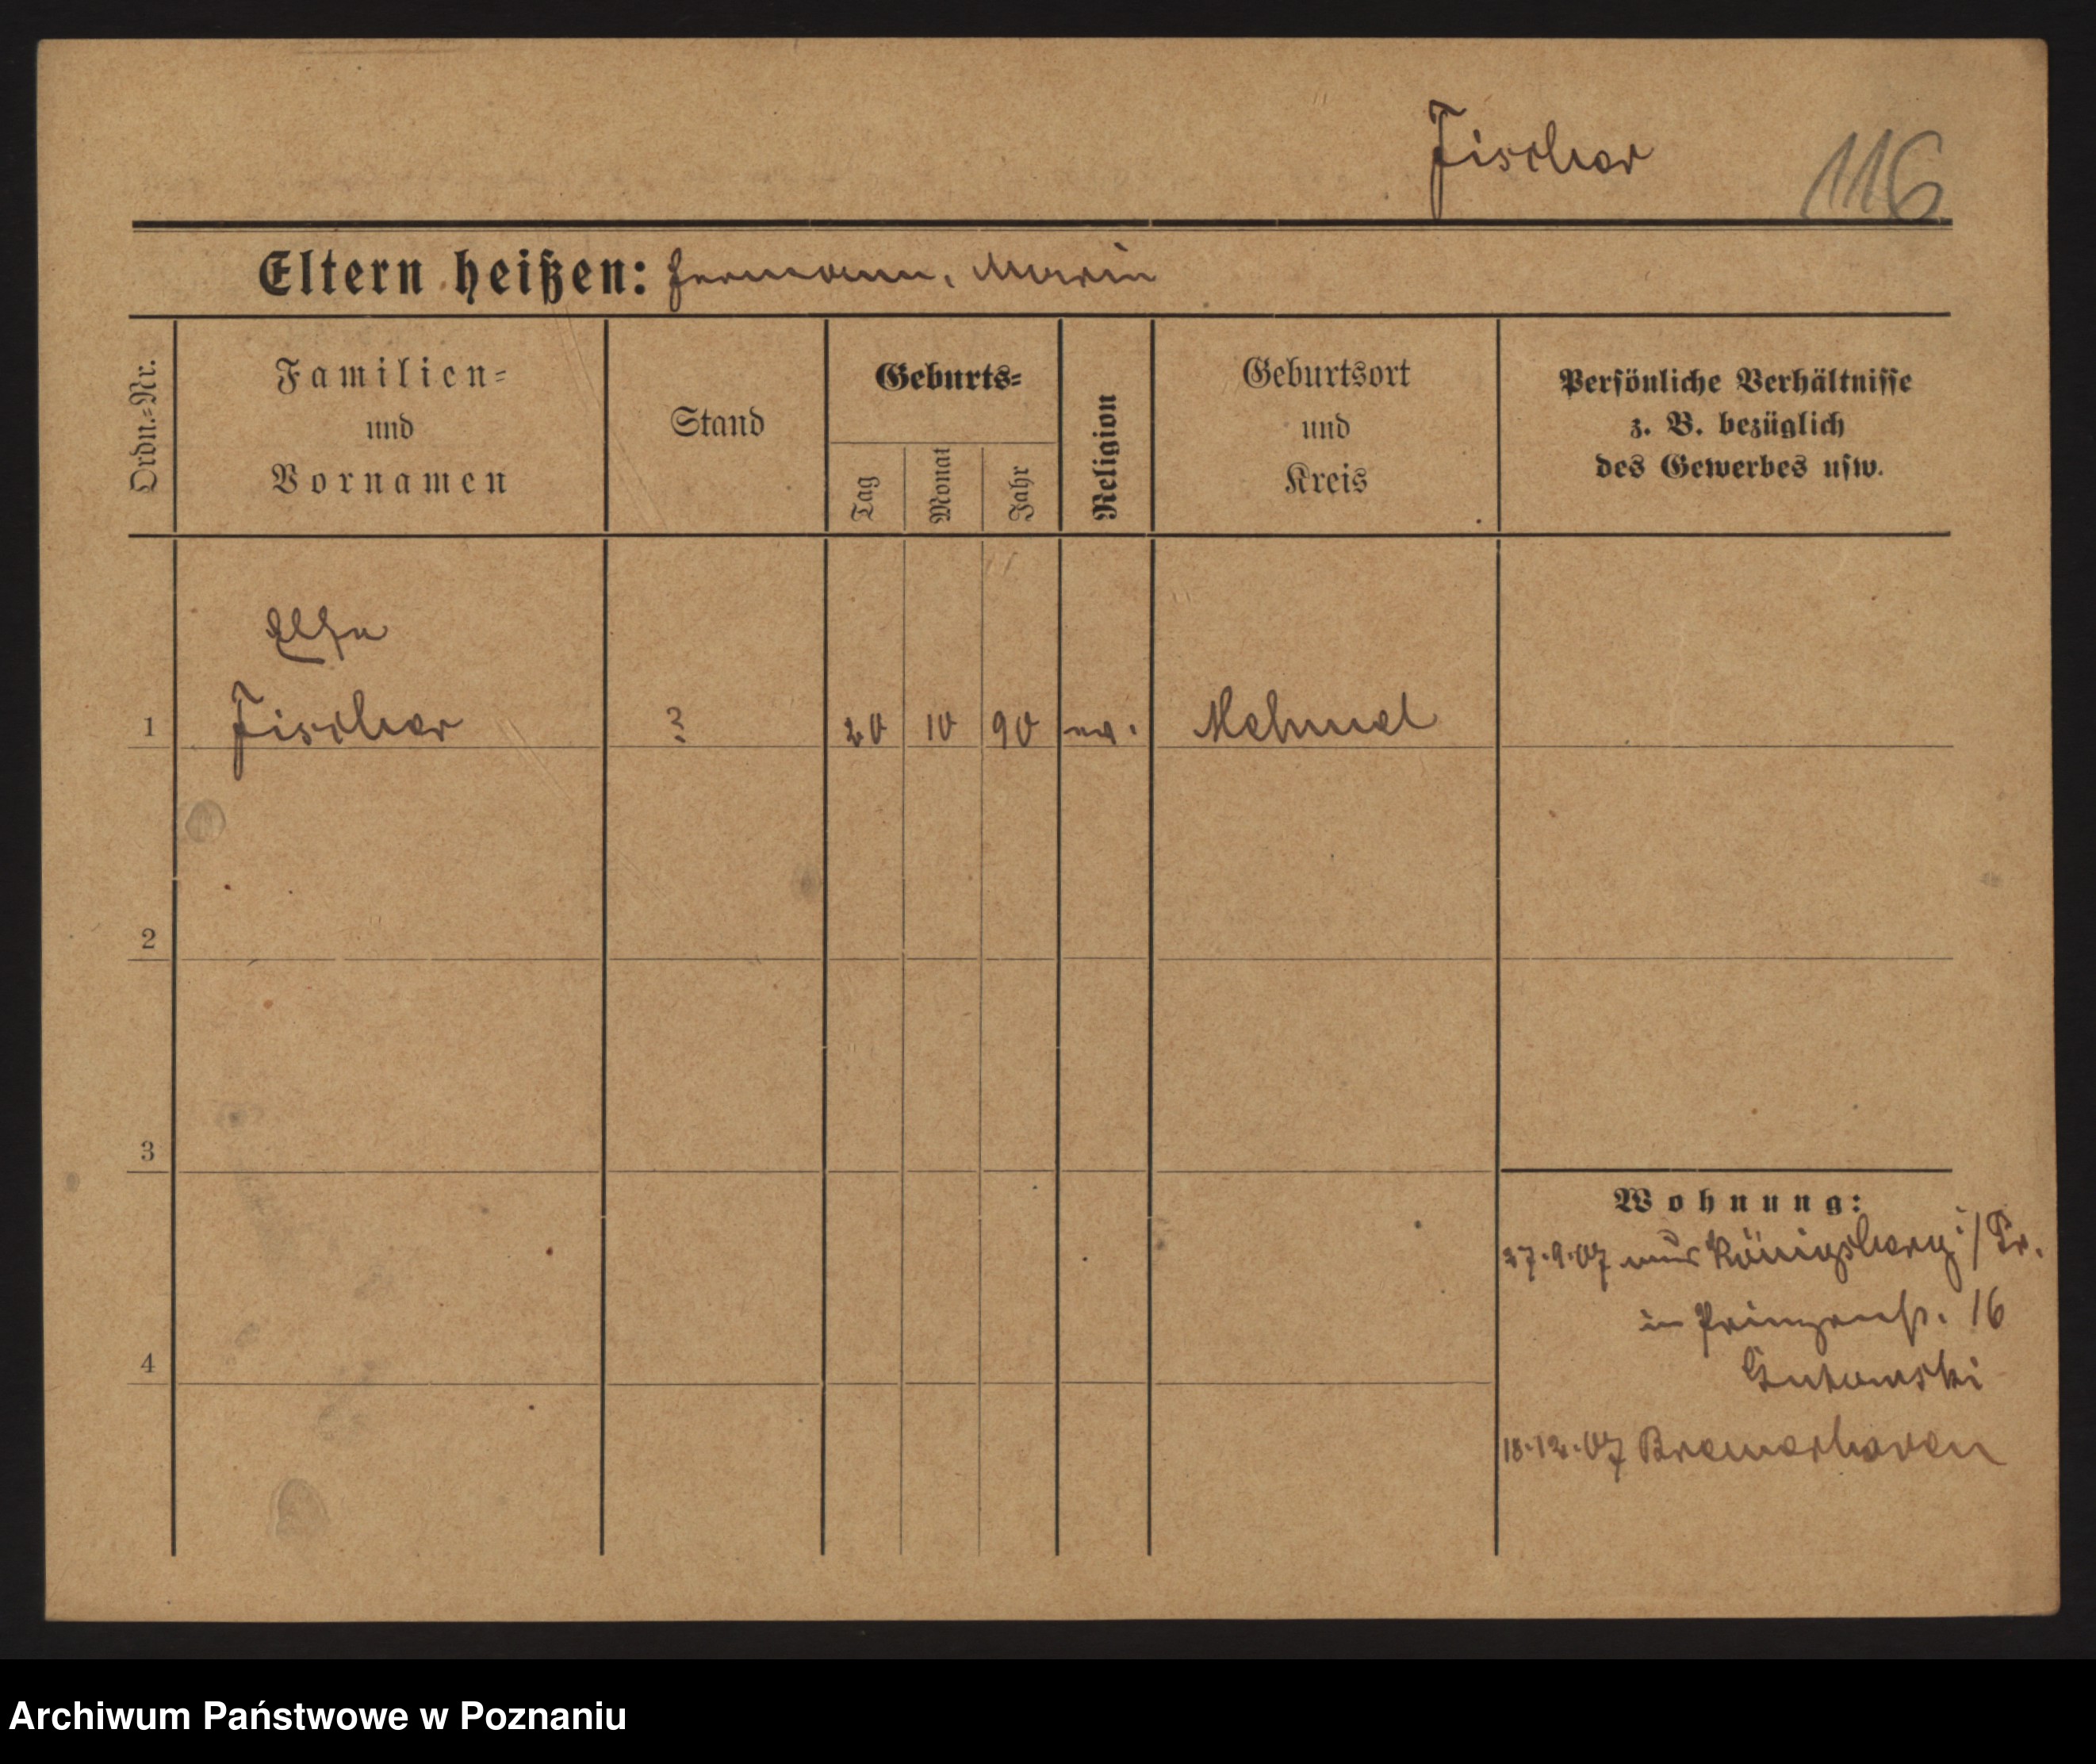 Fischer
116
Eltern heißen: Hermann, Marie
Ordn.=Nr.
Familien=
und
Vornamen
Stand
Geburts=
Tag
Monat
Jahr
Religion
Geburtsort
und
Kreis
Persönliche Verhältnisse
z. B. bezüglich
des Gewerbes usw.
Else
1 Fischer ? 20 10 90 ev.
2
3
4
Wohnung:
27.9.07 aus Königsberg i/Pr.
in Prinzenstr. 16
Gutowski
18.12.07 Bremerhaven
Archiwum Państwowe w Poznaniu